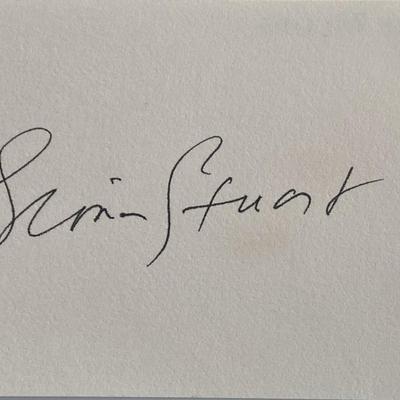 Gloria Stuart